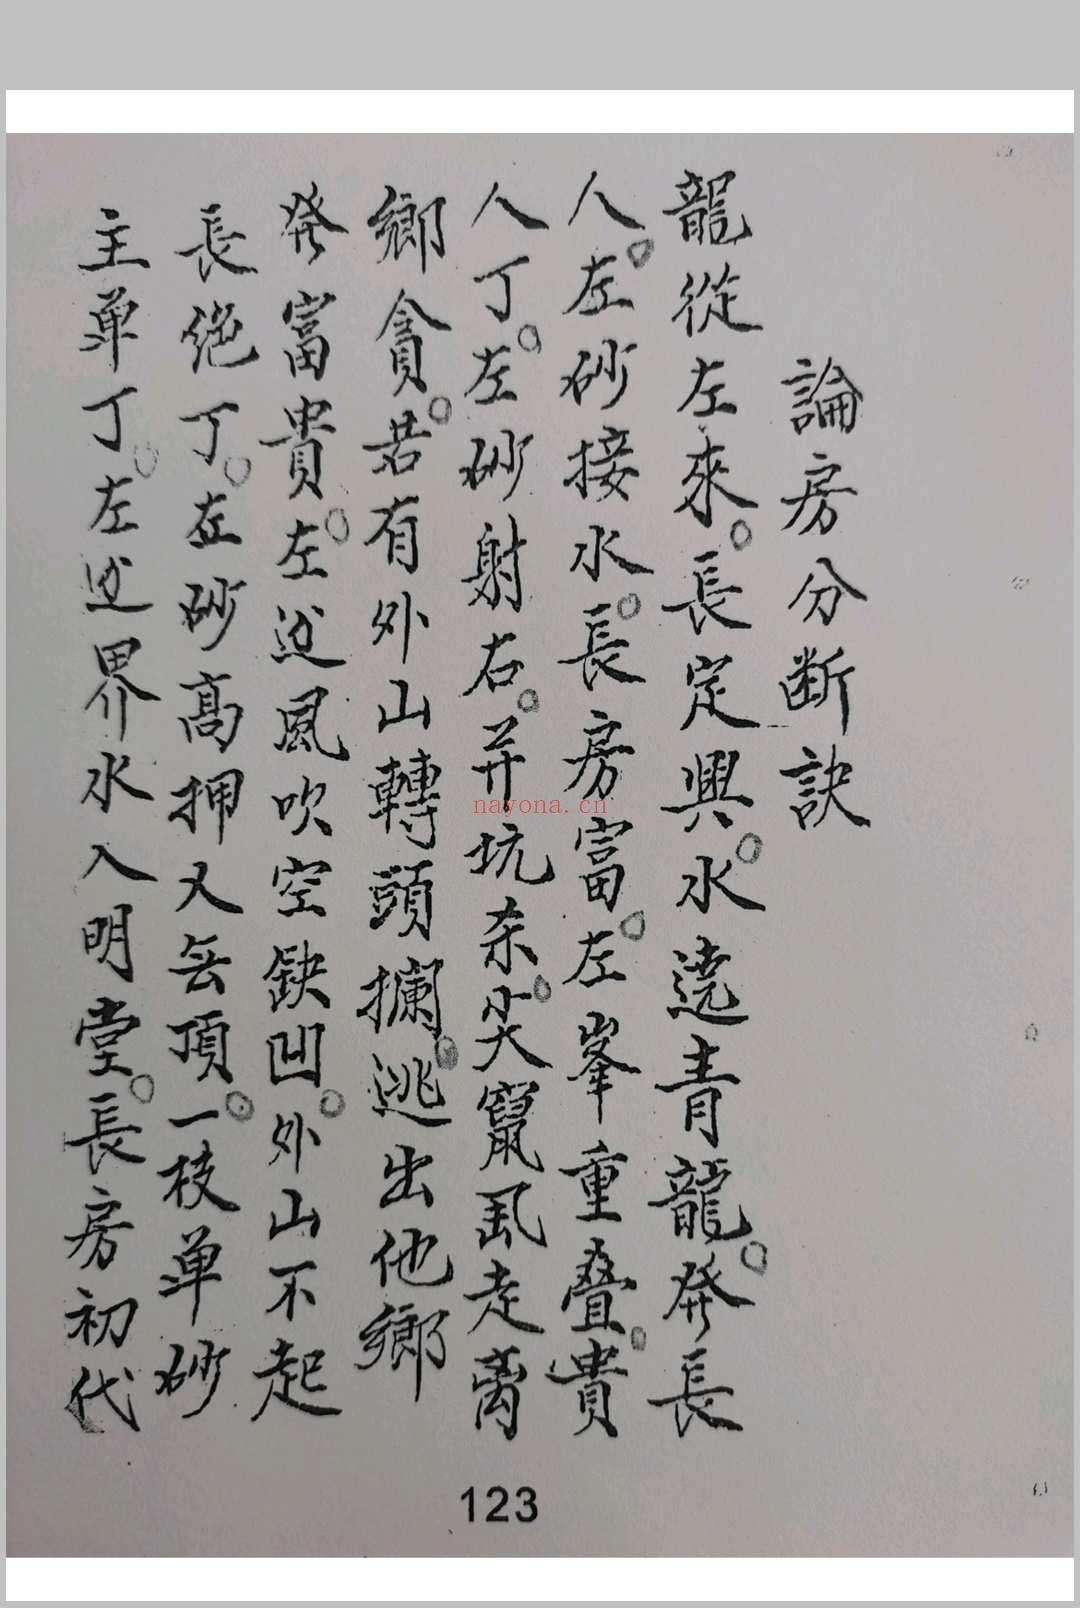 論房分断訣
龍從左來。長定興。水遶青龍。發長
人。左砂接水。長房富。左峯重叠。貴
人丁。左砂射右。并坑杀。尖竄風走离
鄉貪。若有外山轉頭攔。逃出他鄉
發富貴。左边風吹空缺凹。外山不起
長绝丁。左砂高押又無頂。一枝单砂
主单丁。左边界水入明堂。長房初代
nayona.cn
123